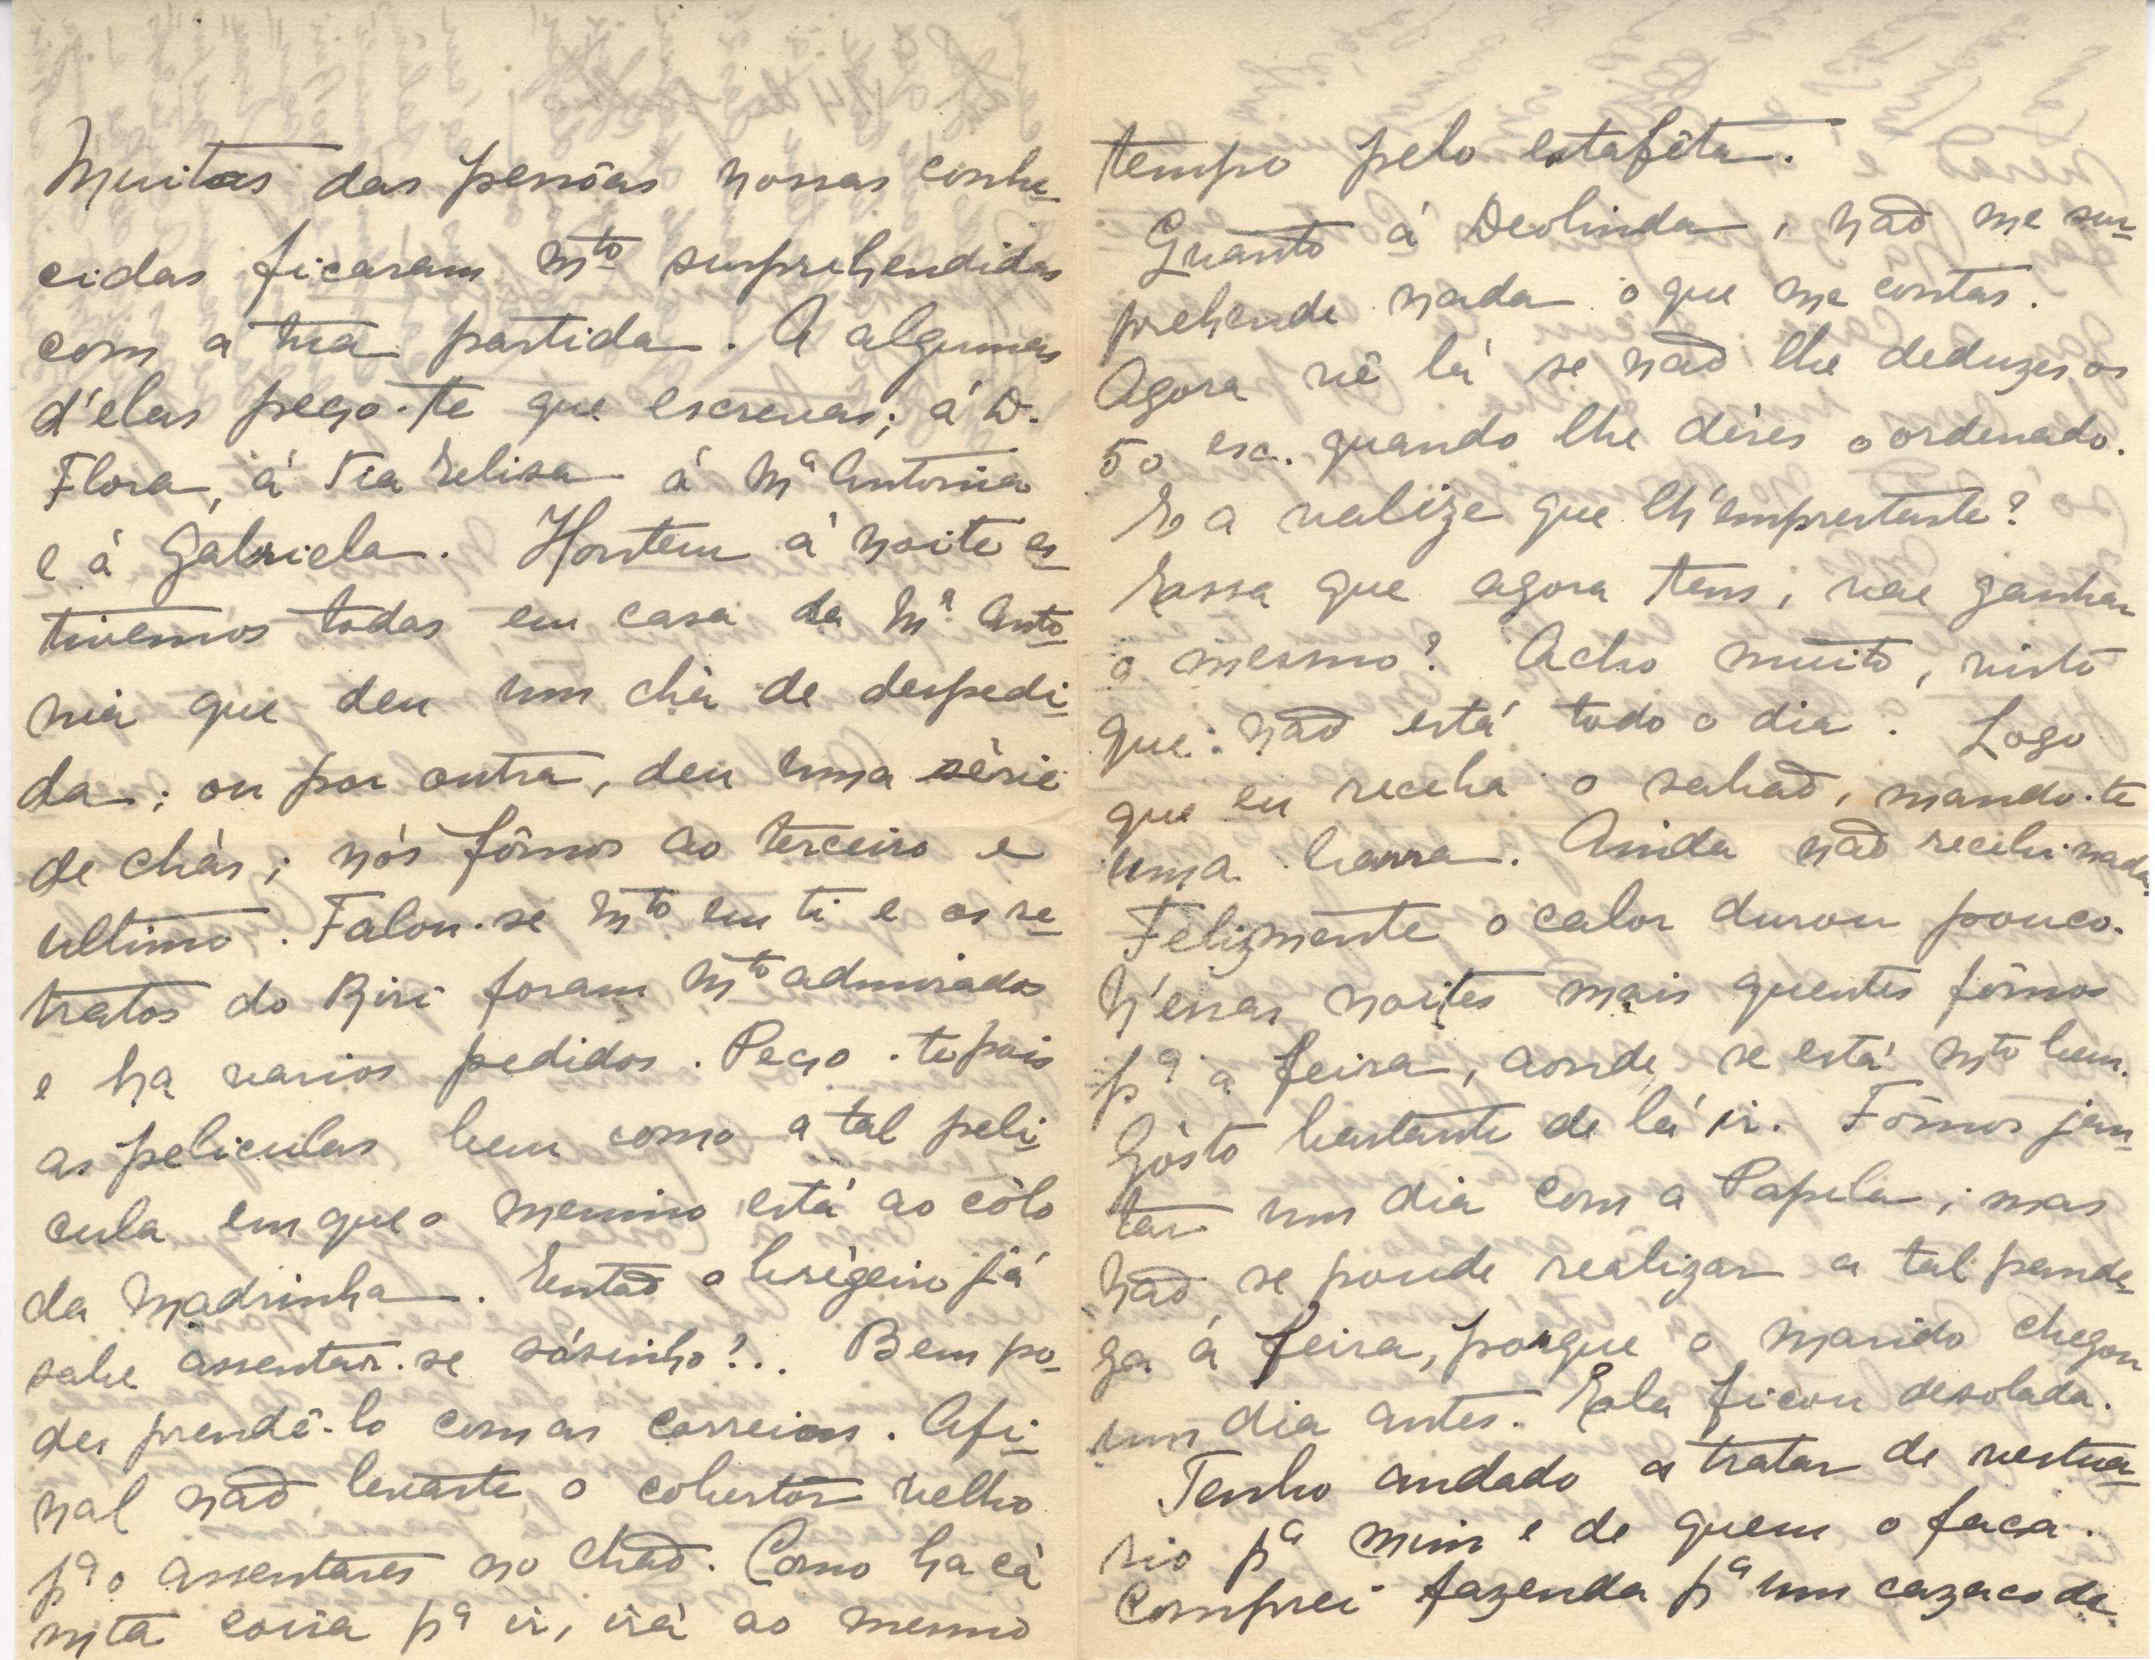 Muitas das pessôas nossas conhe-
cidas ficáram mto surprehendidas
com a tua partida. A algumas
d'elas peço-te que escrevas; á D.
Flora, á Tia Elisa á Ma Antonia
e á Gabriela. Hontem á noite es-
tivemos todas em casa da Ma Anto-
nia que deu um chá de despedi-
da; ou por outra, deu uma série
de chás; nós fômos ao terceiro e
ultimo. Falou-se mto em ti e os re-
tratos do Biri foram mto admirados
e ha varios pedidos. Peço-te pois
as peliculas bem como a tal peli-
cula em que o menino está ao cólo
da Madrinha. Então o brègeiro já
sabe assentar-se sósinho?.. Bem po-
des prendê-lo com as correias. Afi-
nal não levaste o cobertôr velho
pa o assentares no chão. Como ha cá
mta coisa pa ir, irá ao mesmo
tempo pelo estafêta.
Quanto á Deolinda, não me sur-
prehende nada o que me contas.
Agora vê lá se não lhe deduzes os
50 esc. quando lhe déres o ordenado.
E a valize que lh'emprestaste?
Essa que agora tens, vae ganhar
o mesmo? Acho muito, visto
que não está todo o dia. Logo
que eu receba o sabão, mando-te
uma barra. Ainda não recebi nada.
Felizmente o calor durou pouco.
N'essas noites mais quentes fômos
pa a feira, aonde se está mto bem.
Gósto bastante de lá ir. Fômos jan-
tar um dia com a Papela; mas
não se poude realizar a tal pande-
ga á feira, porque o marido chegou
um dia antes. Ela ficou desolada.
Tenho andado a tratar de vestua-
rio pa mim e de quem o faça.
Comprei fazenda pa um cazaco de